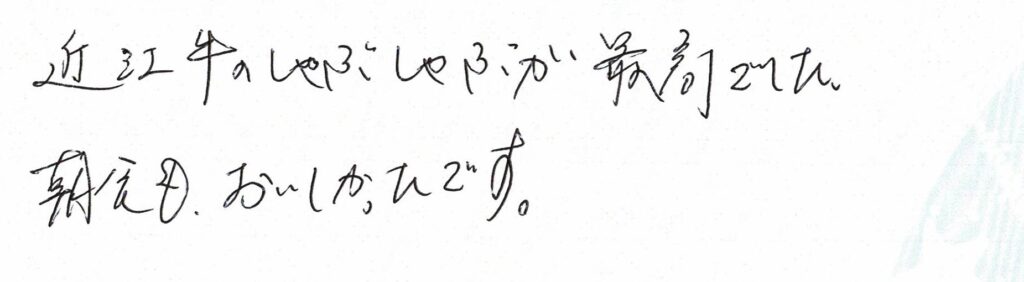 近江牛のしゃぶしゃぶが最高でした、
朝食も、おいしかったです。